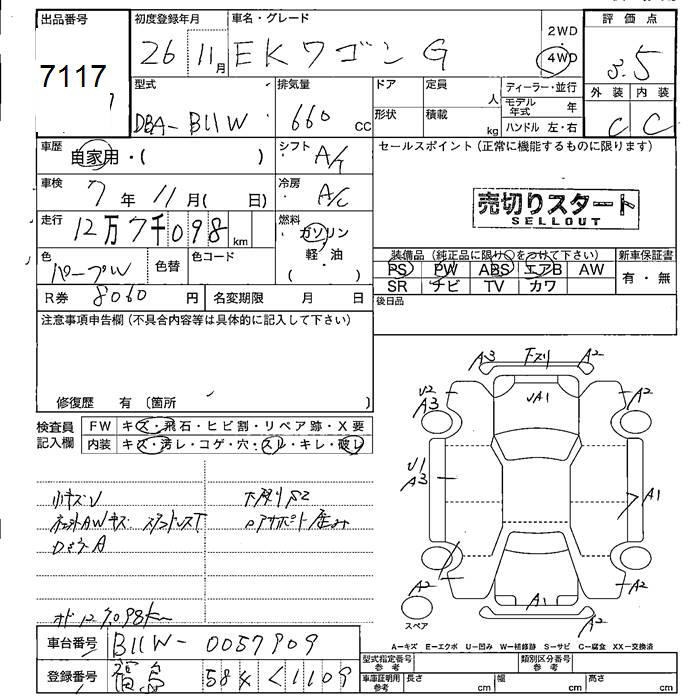 出品番号
7117
初度登録年月
26 11月
車名・グレード
EKワゴン G
2WD
4WD
評価点
3.5
外装 内装
C C
型式
DBA-B11W
排気量
660 cc
ドア
形状
定員 人
積載 kg
ディーラー・並行
モデル年式 年
ハンドル 左・右
車歴
自家用・( )
シフト
A/T
車検
7年 11月( 日)
冷房
A/C
走行
12万7千098km
燃料
ガソリン
軽・油
( )
色
パープルW
色替
色コード
R券 8060円
名変期限 月 日
セールスポイント(正常に機能するものに限ります)
売切りスタート
SELLOUT
装備品(純正品に限り○をつけて下さい)
PS PW ABS エアB AW
SR ナビ TV カワ
新車保証書
有・無
後日品
注意事項申告欄(不具合内容等は具体的に記入して下さい)
修復歴 有 〔箇所 〕
検査員記入欄
FW キズ・飛石・ヒビ割・リペア跡・X要
内装 キズ・汚レ・コゲ・穴・スレ・キレ・破レ
小キズU
A3 下スリ A2
U2
A3
UA1
A2
U1
A3
A1
A2
A1
A2
A2
スペア
車台番号 B11W-0057909
登録番号 福島 58 く1109
A-キズ E-エクボ U-凹み W-補修跡 S-サビ C-腐食 XX-交換済
型式指定番号 参考
類別区分番号 参考
車庫証明 参考 長さ cm 幅 cm 高さ cm